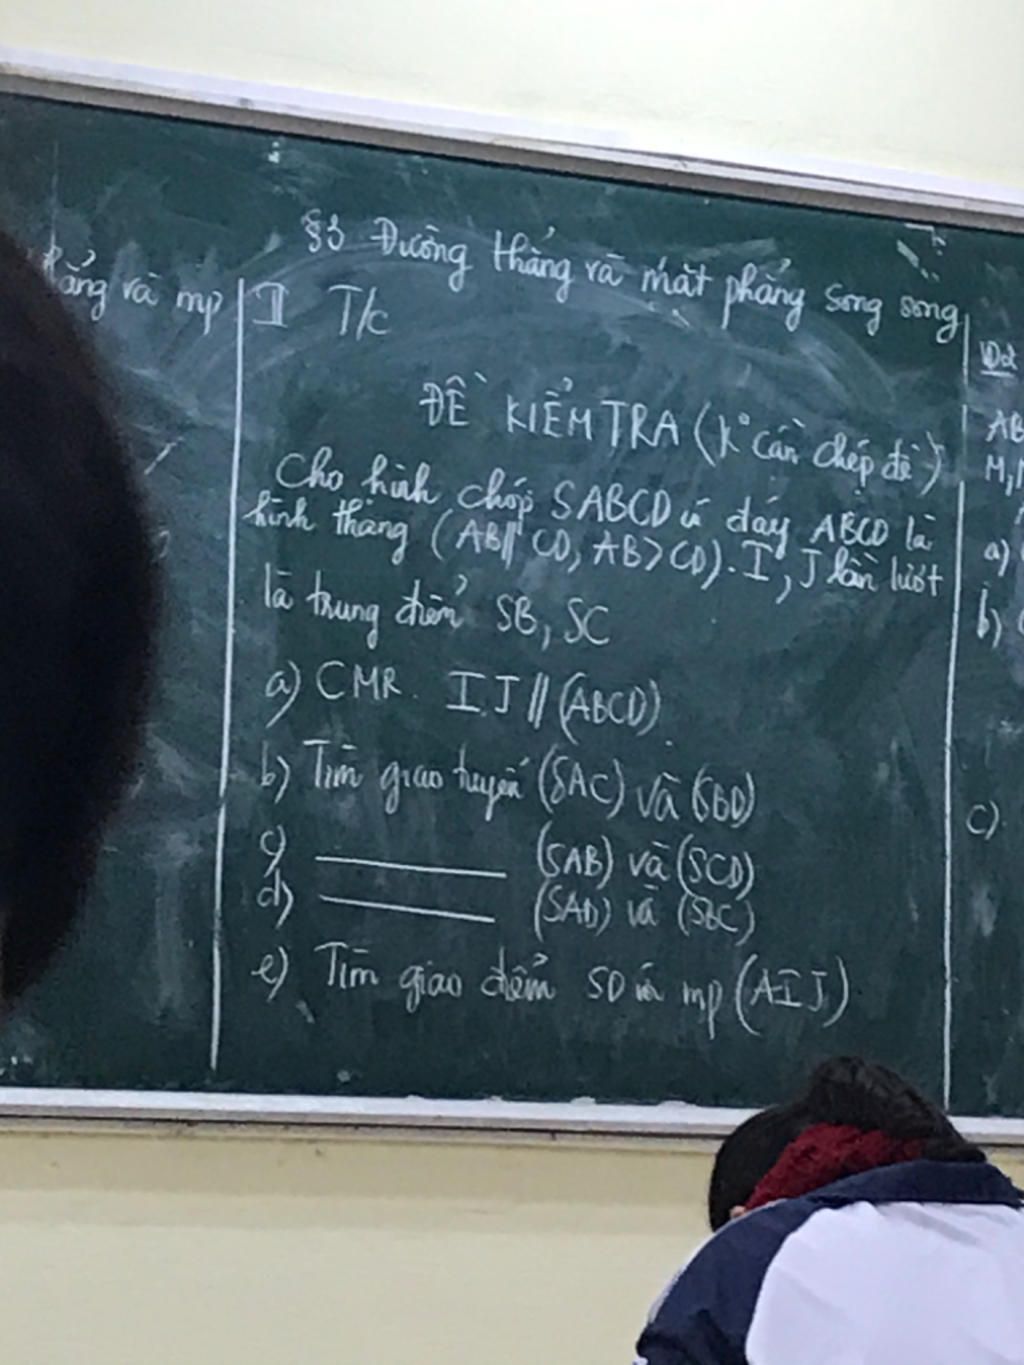 §3 Đường thẳng và mặt phẳng song song
và mp
II T/c
ĐỀ KIỂM TRA (K° cần chép đề)
Cho hình chóp SABCD có đáy ABCD là
hình thang (AB // CD, AB > CD). I, J lần lượt
là trung điểm SB, SC
a) CMR. IJ // (ABCD)
b) Tìm giao tuyến (SAC) và (SBD)
c) ——— (SAB) và (SCD)
d) ——— (SAD) và (SBC)
e) Tìm giao điểm SD và mp (AIJ)
AB
M,
a)
b)
c)